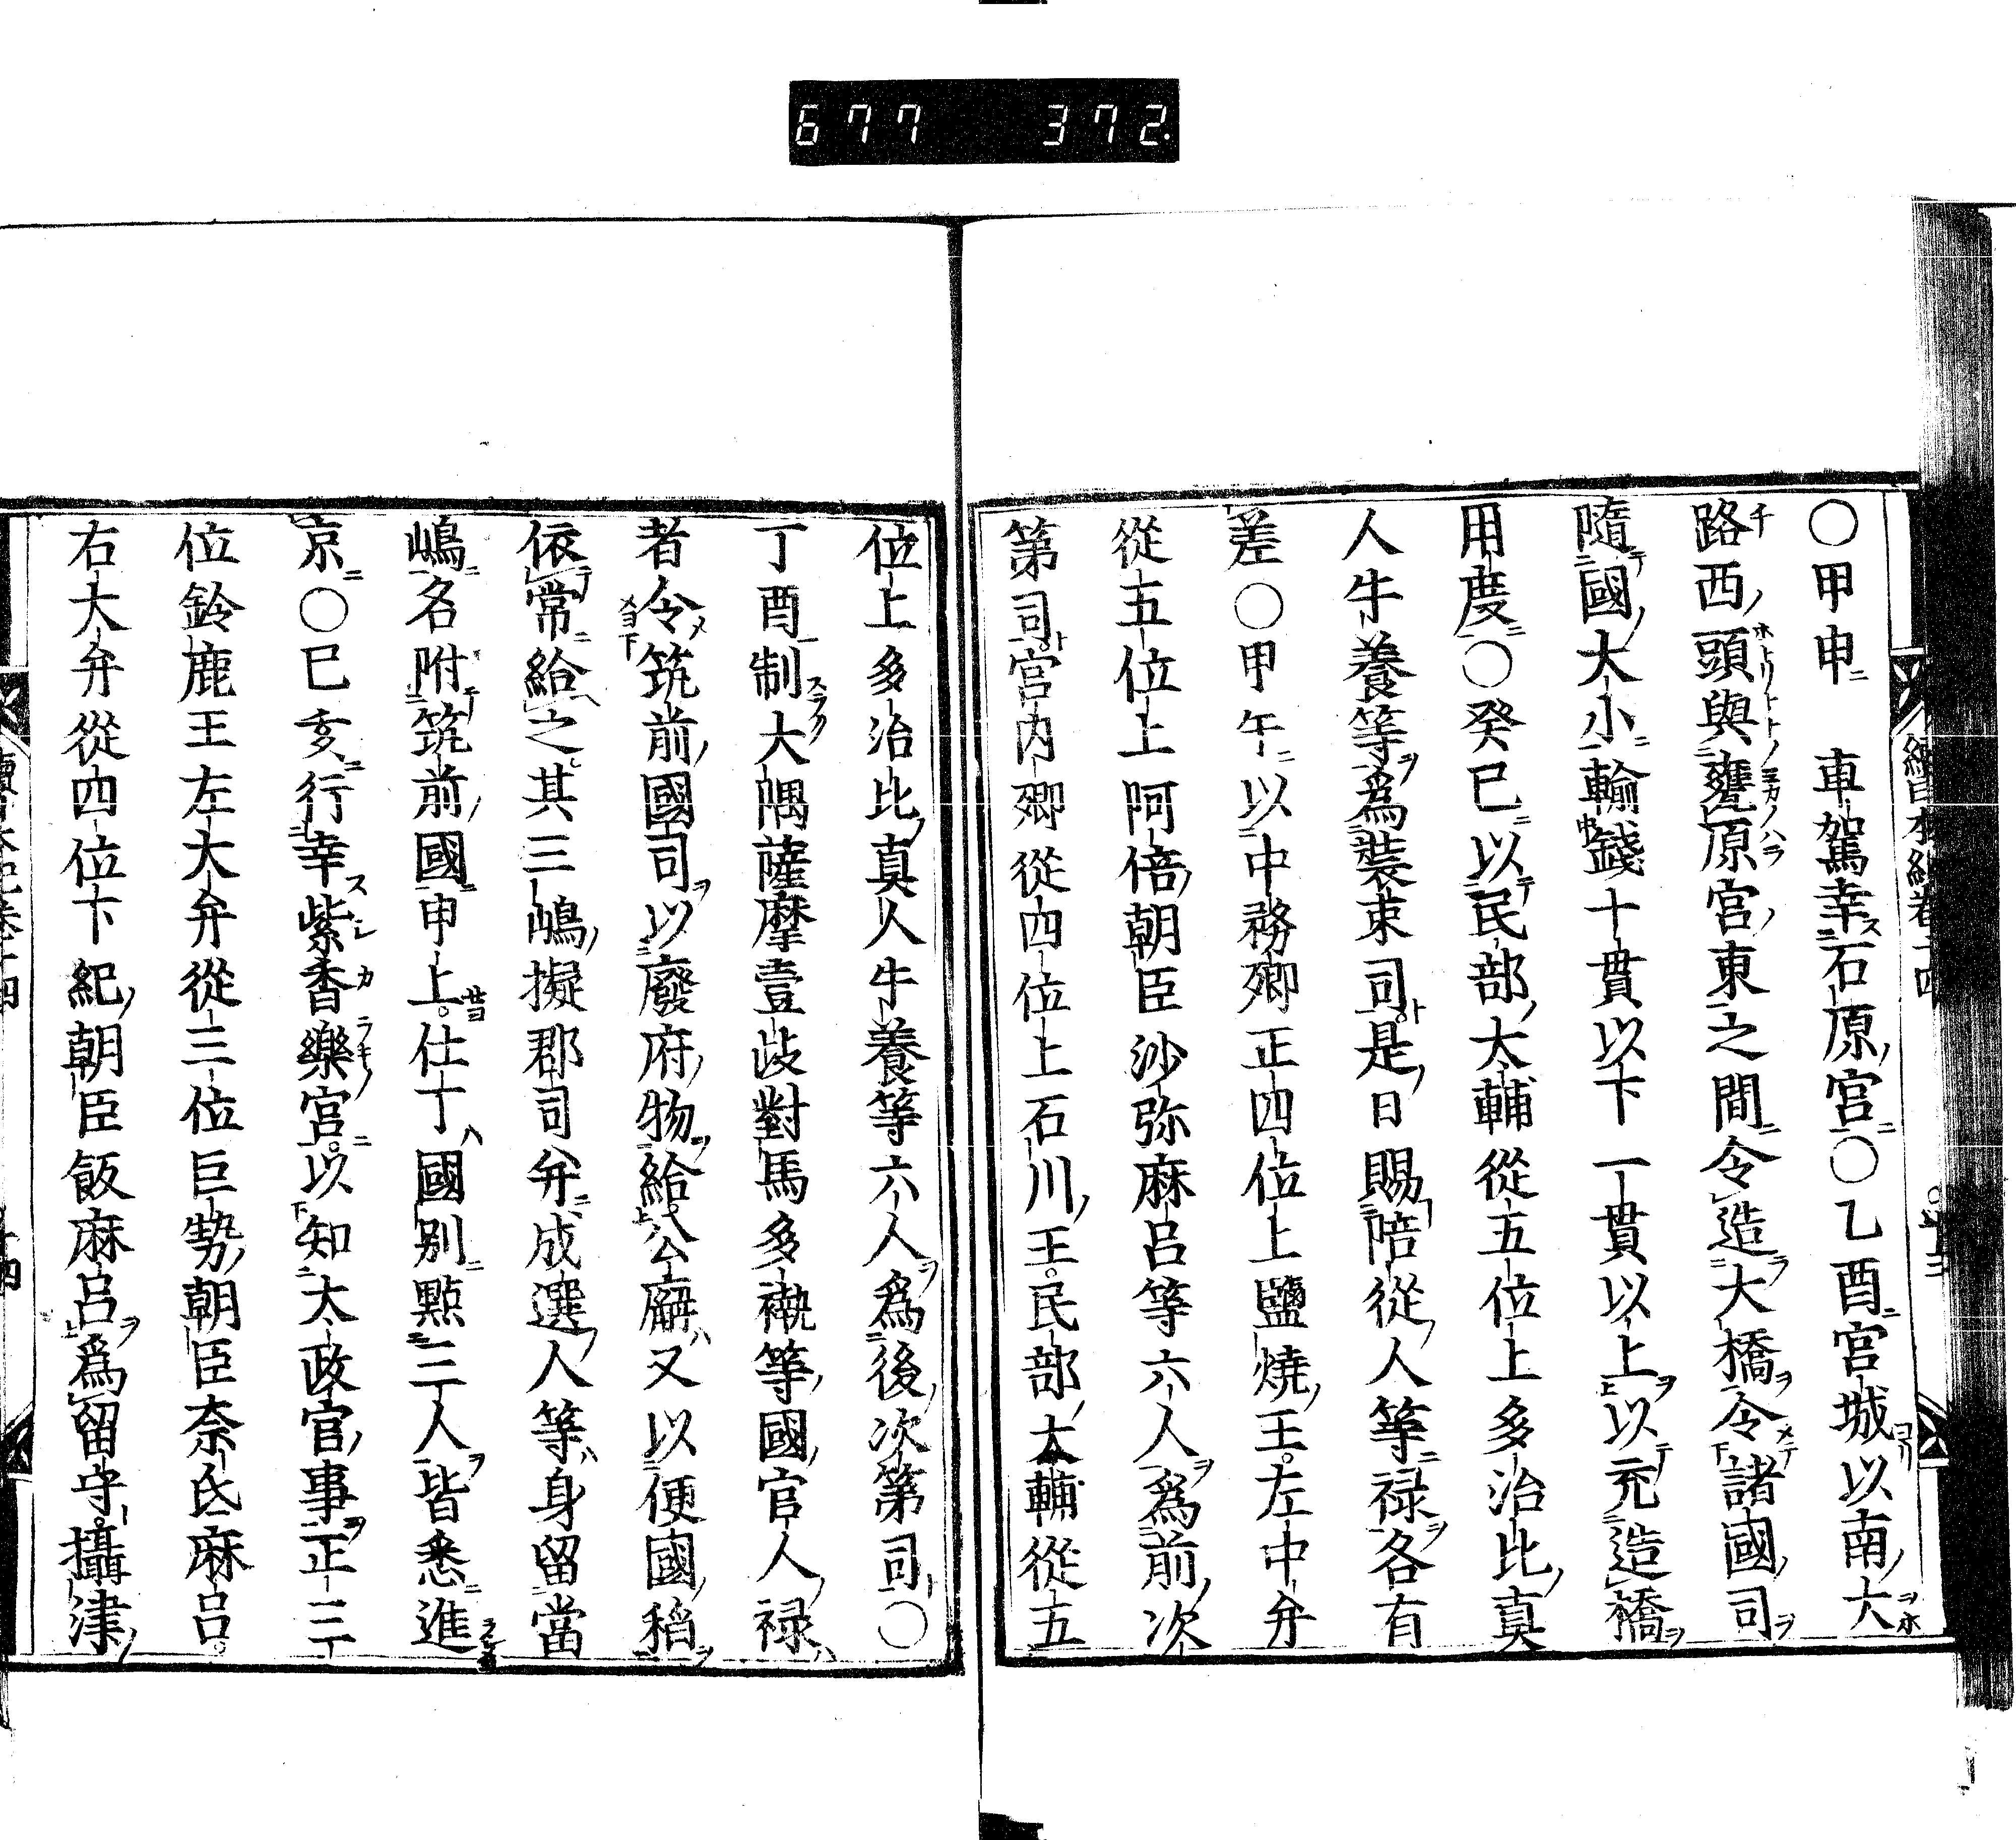 677 372.
〇甲申車駕幸石原宮〇乙酉宮城以南大
路西頭與甕原宮東之間令造大橋令諸國司
隨國大小輸錢十貫以下一貫以上以充造橋
用度〇癸巳以民部大輔從五位上多治比真
人牛養等爲裝束司是日賜陪從人等禄各有
差〇甲午以中務卿正四位上鹽燒王左中弁
從五位上阿倍朝臣沙弥麻呂等六人爲前次
第司宮内卿從四位上石川王民部大輔從五
位上多治比真人牛養等六人爲後次第司〇
丁酉制大隅薩摩壹岐對馬多褹等國官人禄
者令筑前國司以廢府物給公廨又以便國稻
依常給之其三嶋擬郡司弁成選人等身留當
嶋名附筑前國申上仕丁國別點三人皆悉進
京〇巳亥行幸紫香樂宮以知太政官事正三
位鈴鹿王左大弁從三位巨勢朝臣奈氐麻呂
右大弁從四位下紀朝臣飯麻呂爲留守攝津